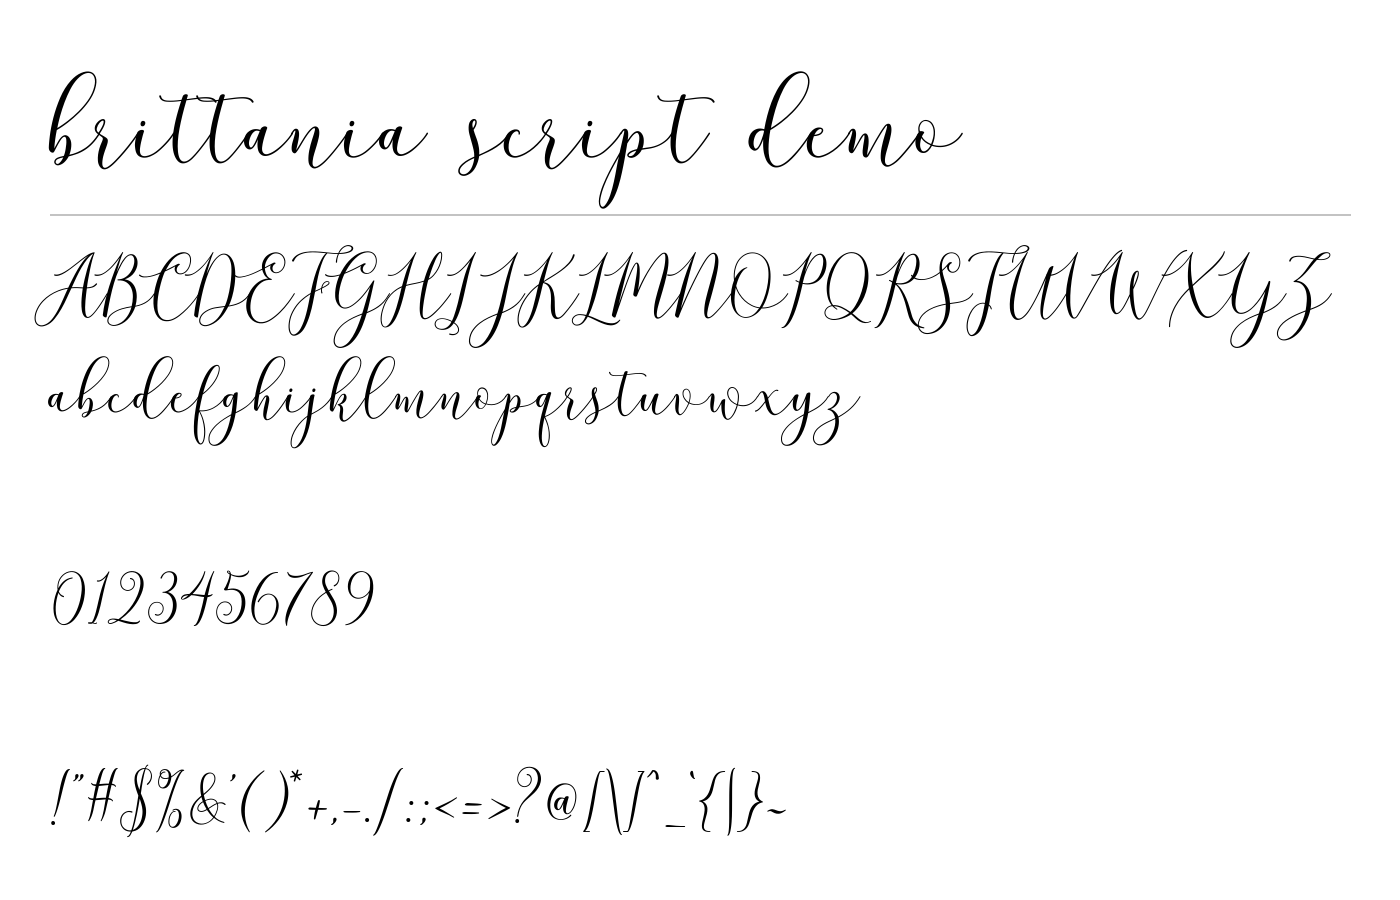 brittania script demo
ABCDEFGHIJKLMNOPQRSTUVWXYZ
abcdefghijklmnopqrstuvwxyz
0123456789
!"#$%&'()*+,-./:;<=>?@[\]^_`{|}~